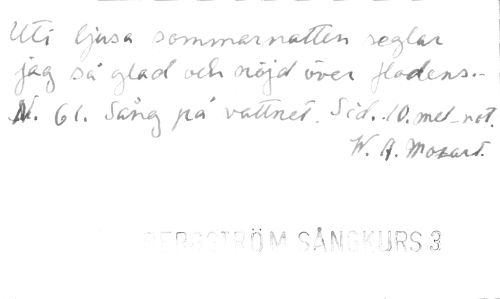 Uti ljusa sommarnatten seglar
jag så glad och nöjd över flodens.-
N. 61. Sång på vattnet. Sid. 10. mel-not.
W. A. Mozart.
BERGSTRÖM SÅNGKURS 3